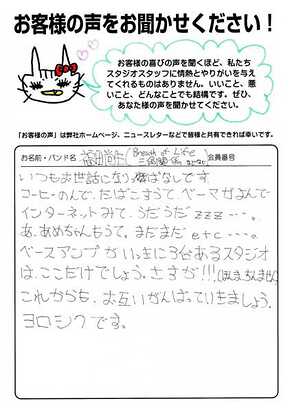 お客様の声をお聞かせください！
お客様の喜びの声を聞くほど、私たち
スタジオスタッフに情熱とやりがいを与え
てくれるものはありません。いいこと、悪
いこと、どんなことでも結構です。ぜひ、
あなた様の声を聞かせてください。
「お客様の声」は弊社ホームページ、ニュースレターなどで皆様と共有できれば幸いです。
お名前・バンド名 (Breath of Life 会員番号
いつもお世話になりっぱなしです
コーヒーのんで、たばこすって、ベーマガよんで
インターネットみて、うだうだ zzz…。
あ、あめちゃんもうて、まだまだ etc…。
ベースアンプがいっきに3台あるスタジオ
は、ここだけでしょう。さすが!!!
これからも、お互いがんばっていきましょう。
ヨロシクです。